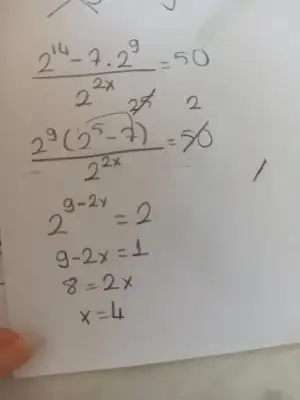 2^14 - 7 . 2^9 / 2^2x = 50
25 2
2^9 (2^5 - 7) / 2^2x = 50
2^9-2x = 2
9-2x = 1
8 = 2x
x = 4